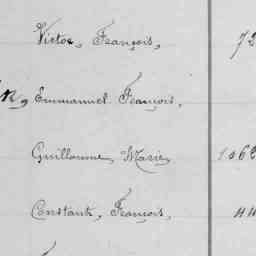 Victor, François, 72
Emmanuel François,
Guillaume, Marie 1062
Constant, François, 44